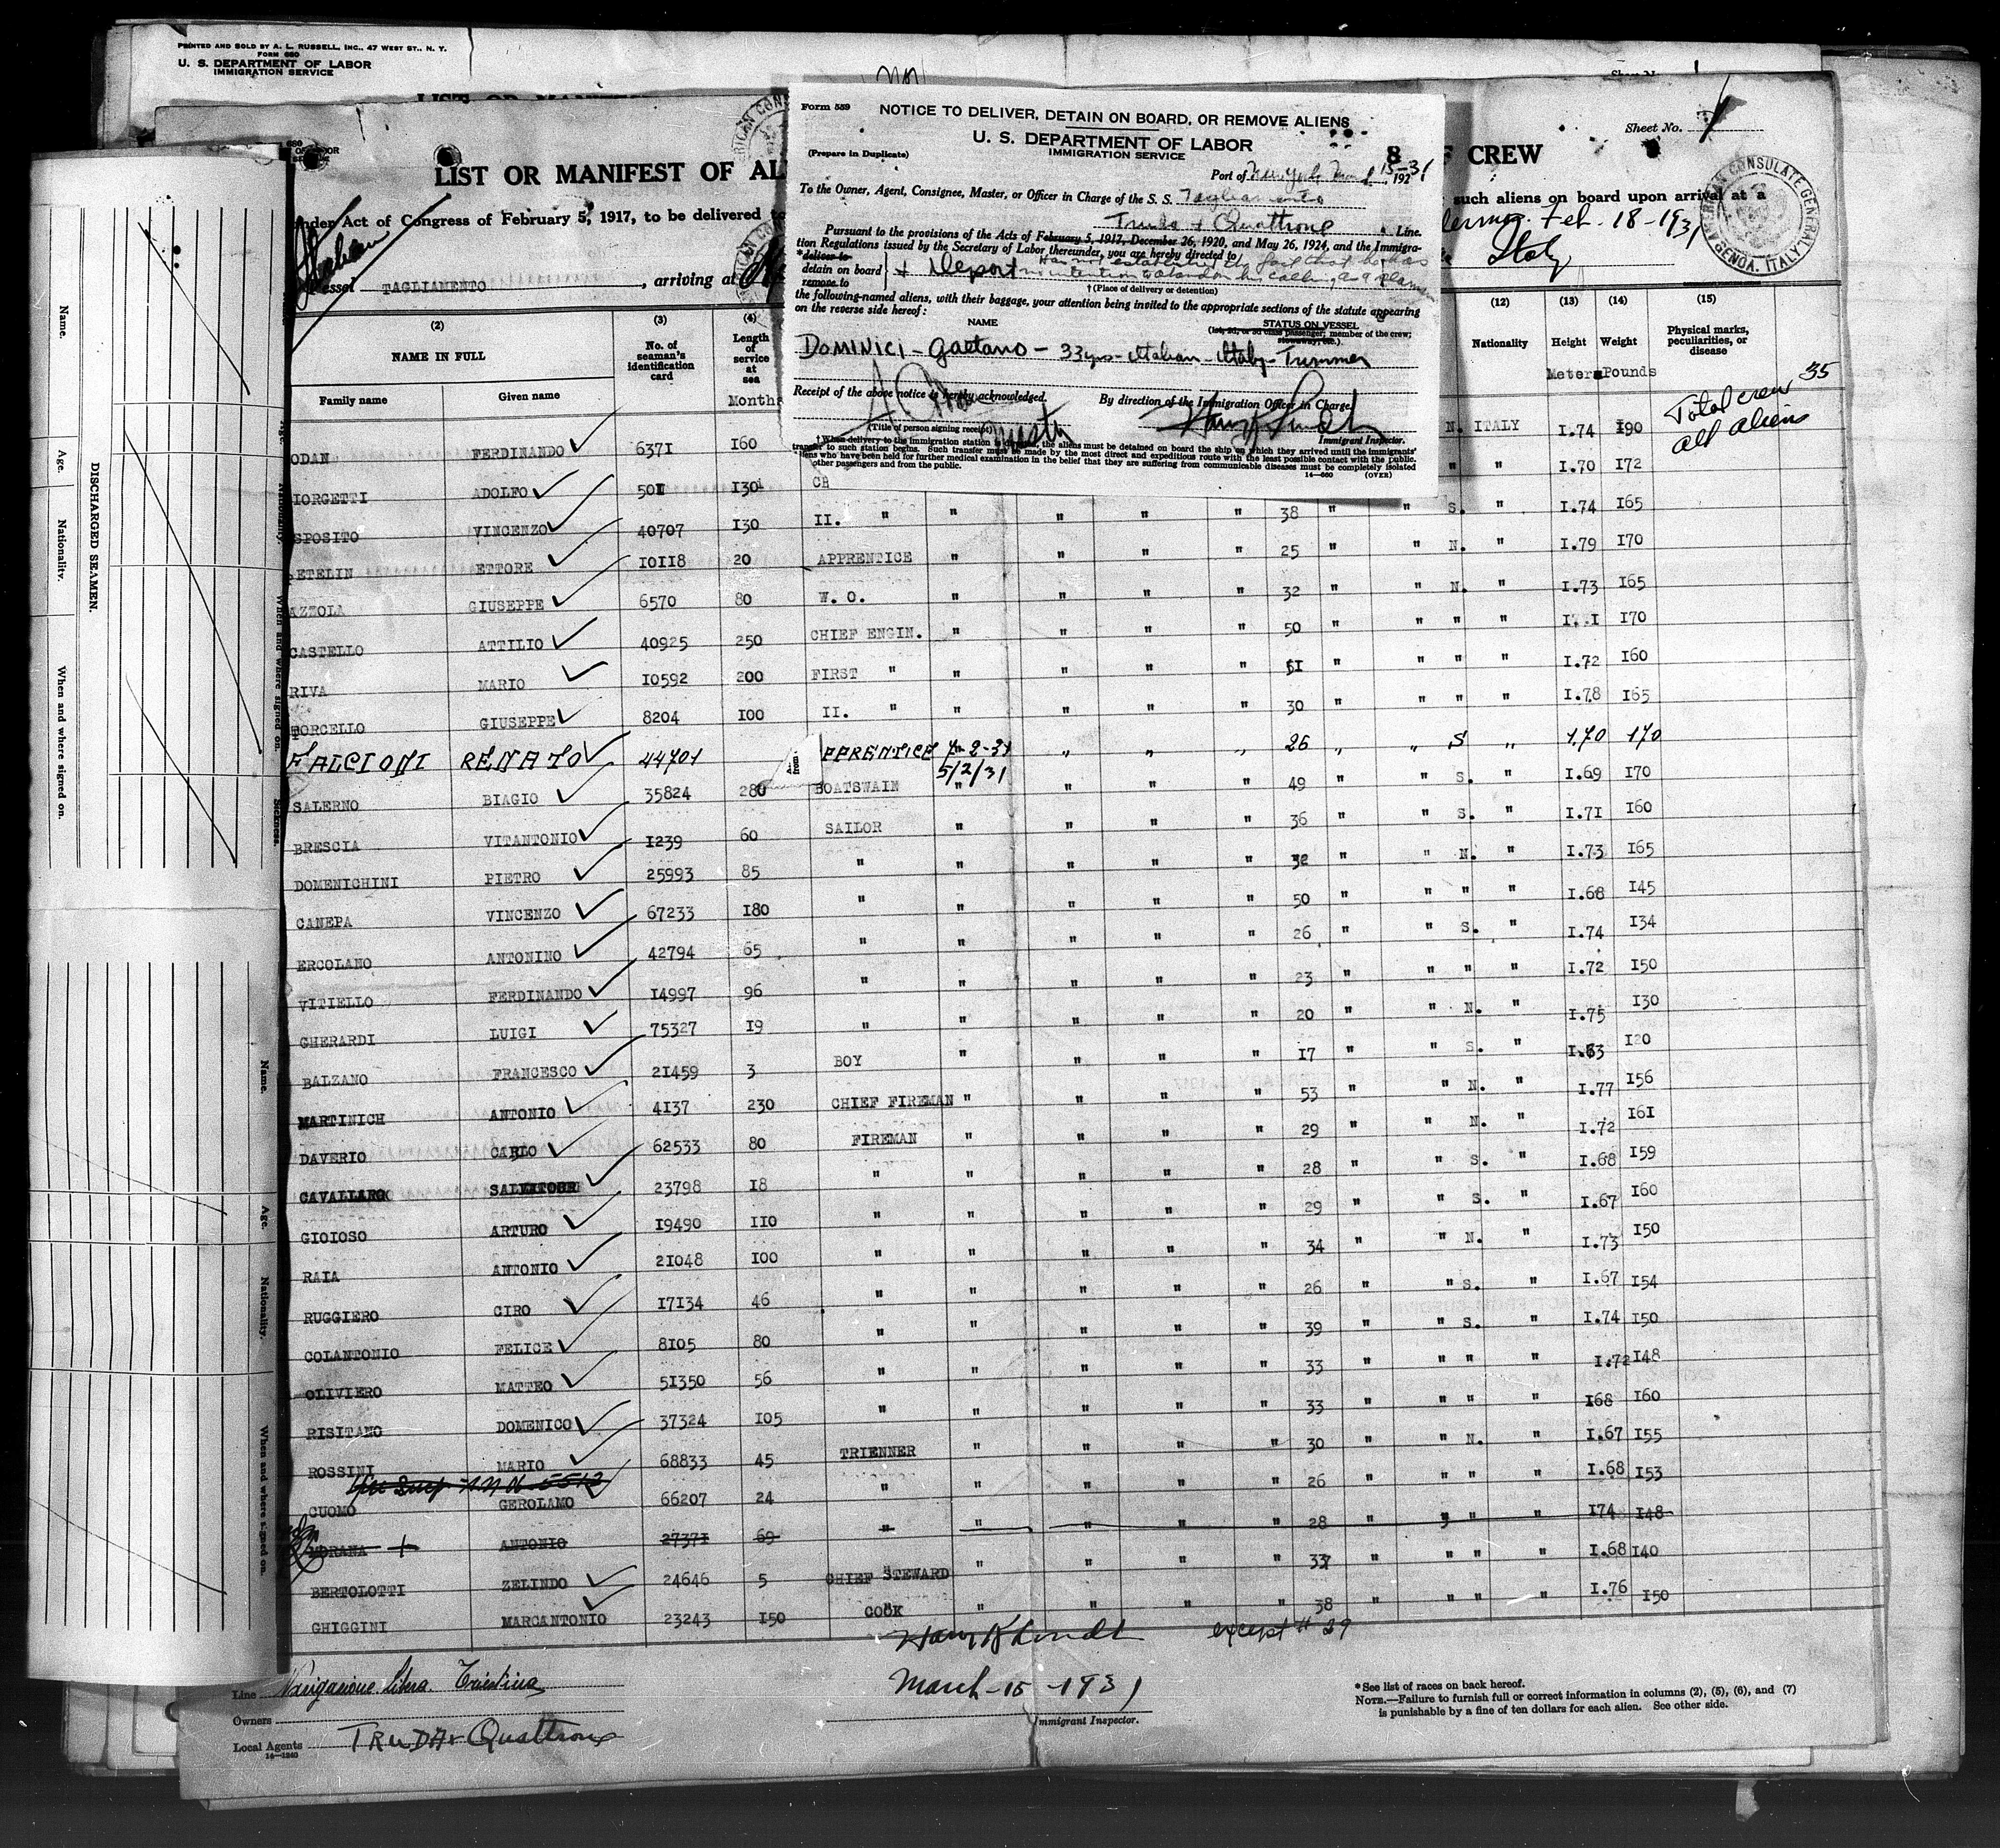 PRINTED AND SOLD BY A. L. RUSSELL, INC., 47 WEST ST., N. Y.
FORM 680
U. S. DEPARTMENT OF LABOR
IMMIGRATION SERVICE
Form 559
NOTICE TO DELIVER, DETAIN ON BOARD, OR REMOVE ALIENS
U. S. DEPARTMENT OF LABOR
IMMIGRATION SERVICE
(Prepare in Duplicate)
Port of New York 15-31, 192
To the Owner, Agent, Consignee, Master, or Officer in Charge of the S. S. Tagliamento
Truda + Quattrone Line.
Pursuant to the provisions of the Acts of February 5, 1917, December 26, 1920, and May 26, 1924, and the Immigra-
tion Regulations issued by the Secretary of Labor thereunder, you are hereby directed to
*deliver to
detain on board
remove to
+ Deport Has not established the fact that he has
no intention to abandon his calling as a seaman
† (Place of delivery or detention)
the following-named aliens, with their baggage, your attention being invited to the appropriate sections of the statute appearing
on the reverse side hereof:
NAME
STATUS ON VESSEL
(1st, 2d, or 3d class passenger; member of the crew;
stowaway, etc.)
DOMINICI - Gaetano - 33 yrs - Italian - Italy - Trimmer
Receipt of the above notice is hereby acknowledged.
By direction of the Immigration Officer in Charge.
(Title of person signing receipt)
Immigrant Inspector.
† When delivery to the immigration station is the aliens must be detained on board the ship on which they arrived until the immigrants'
transfer to such station begins. Such transfer must be made by the most direct and expeditious route with the least possible contact with the public.
Aliens who have been held for further medical examination in the belief that they are suffering from communicable diseases must be completely isolated
other passengers and from the public.
14—660 (OVER)
LIST OR MANIFEST OF AL
CREW
Sheet No. 1
AMERICAN CONSULATE GENERAL
GENOA, ITALY
Under Act of Congress of February 5, 1917, to be delivered to
such aliens on board upon arrival at a
Italian
Vessel TAGLIAMENTO, arriving at
Feb. 18-1931
Italy
(2) (3) (4) (12) (13) (14) (15)
NAME IN FULL
No. of seaman's identification card
Length of service at sea
Nationality Height Weight
Physical marks, peculiarities, or disease
Family name Given name Months Meters Pounds
Total crew 35
all aliens
ODAN FERDINANDO 6371 160 N. ITALY 1.74 190
IORGETTI ADOLFO 501 130 " " 1.70 172
SPOSITO VINCENZO 40707 130 II. " " " " " 38 " " S. " 1.74 165
ETELIN ETTORE 10118 20 APPRENTICE " " " " 25 " " N. " 1.79 170
AZZOLA GIUSEPPE 6570 80 W. O. " " " " 32 " " N. " 1.73 165
CASTELLO ATTILIO 40925 250 CHIEF ENGIN. " " " " 50 " " " " 170
RIVA MARIO 10592 200 FIRST " " " " " 51 " " " " 1.72 160
TORCELLO GIUSEPPE 8204 100 II. " " " " " 30 " " " " 1.78 165
FALCIONI RENATO 44701 APPRENTICE 5/2/31 " " " 26 " " S " 1.70 170
SALERNO BIAGIO 35824 280 BOATSWAIN " " " " 49 " " S. " 1.69 170
BRESCIA VITANTONIO 1239 60 SAILOR " " " " 36 " " S. " 1.71 160
DOMENICHINI PIETRO 25993 85 " " " " " 32 " " N. " 1.73 165
CANEPA VINCENZO 67233 180 " " " " " 50 " " " " 1.68 145
ERCOLANO ANTONINO 42794 65 " " " " " 26 " " S. " 1.74 134
VITIELLO FERDINANDO 14997 96 " " " " " 23 " " " " 1.72 150
GHERARDI LUIGI 75327 19 " " " " " 20 " " N. " 1.75 130
BALZANO FRANCESCO 21459 3 BOY " " " " 17 " " S. " 1.63 120
MARTINICH ANTONIO 4137 230 CHIEF FIREMAN " " " " 53 " " N. " 1.77 156
DAVERIO CARLO 62533 80 FIREMAN " " " " 29 " " N. " 1.72 161
CAVALLARO SALVATORE 23798 18 " " " " " 28 " " S. " 1.68 159
GIOIOSO ARTURO 19490 110 " " " " " 29 " " S. " 1.67 160
RAIA ANTONIO 21048 100 " " " " " 34 " " N. " 1.73 150
RUGGIERO CIRO 17134 46 " " " " " 26 " " S. " 1.67 154
COLANTONIO FELICE 8105 80 " " " " " 39 " " S. " 1.74 150
OLIVIERO MATTEO 51350 56 " " " " " 33 " " " " 1.72 148
RISITANO DOMENICO 37324 105 " " " " " 33 " " " " 168 160
ROSSINI MARIO 68833 45 TRIENNER " " " " 30 " " N. " 1.67 155
CUOMO GEROLAMO 66207 24 " " " " " 26 " " " " 1.68 153
MORANA + ANTONIO 27371 69 " " " " " 28 " " " 174 148
BERTOLOTTI ZELINDO 24646 5 CHIEF STEWARD " " " " 33 " " " " 1.68 140
GHIGGINI MARCANTONIO 23243 150 COOK " " " " 38 " " " " 1.76 150
except # 29
March - 15 - 1931
Immigrant Inspector.
Line Navigazione Libera Triestina
Owners
Local Agents TRUDA + Quattrone
14—1240
* See list of races on back hereof.
NOTE.—Failure to furnish full or correct information in columns (2), (5), (6), and (7)
is punishable by a fine of ten dollars for each alien. See other side.
DISCHARGED SEAMEN.
Name. Age. Nationality. When and where signed on.
Name. Age. Nationality. When and where signed on.